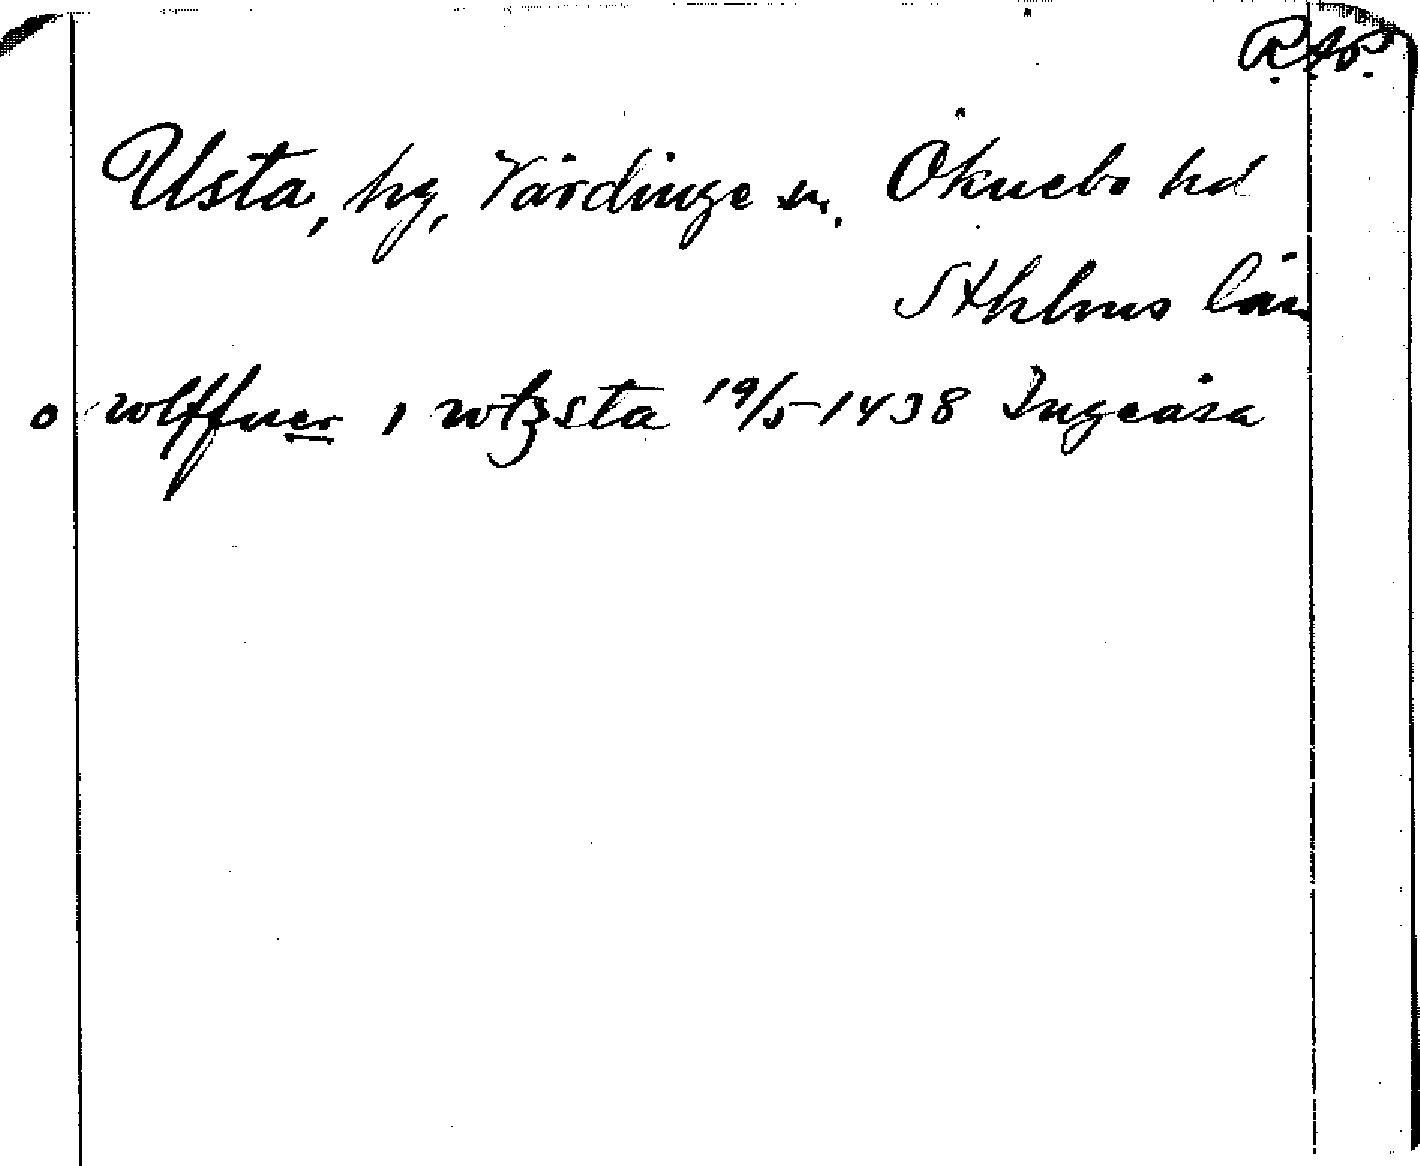 R.Ap.
Usta, hg, Vårdinge sn. Öknebo hd
Sthlms län
o wlffuer i wtzsta 19/5 1438 Ingeåsa